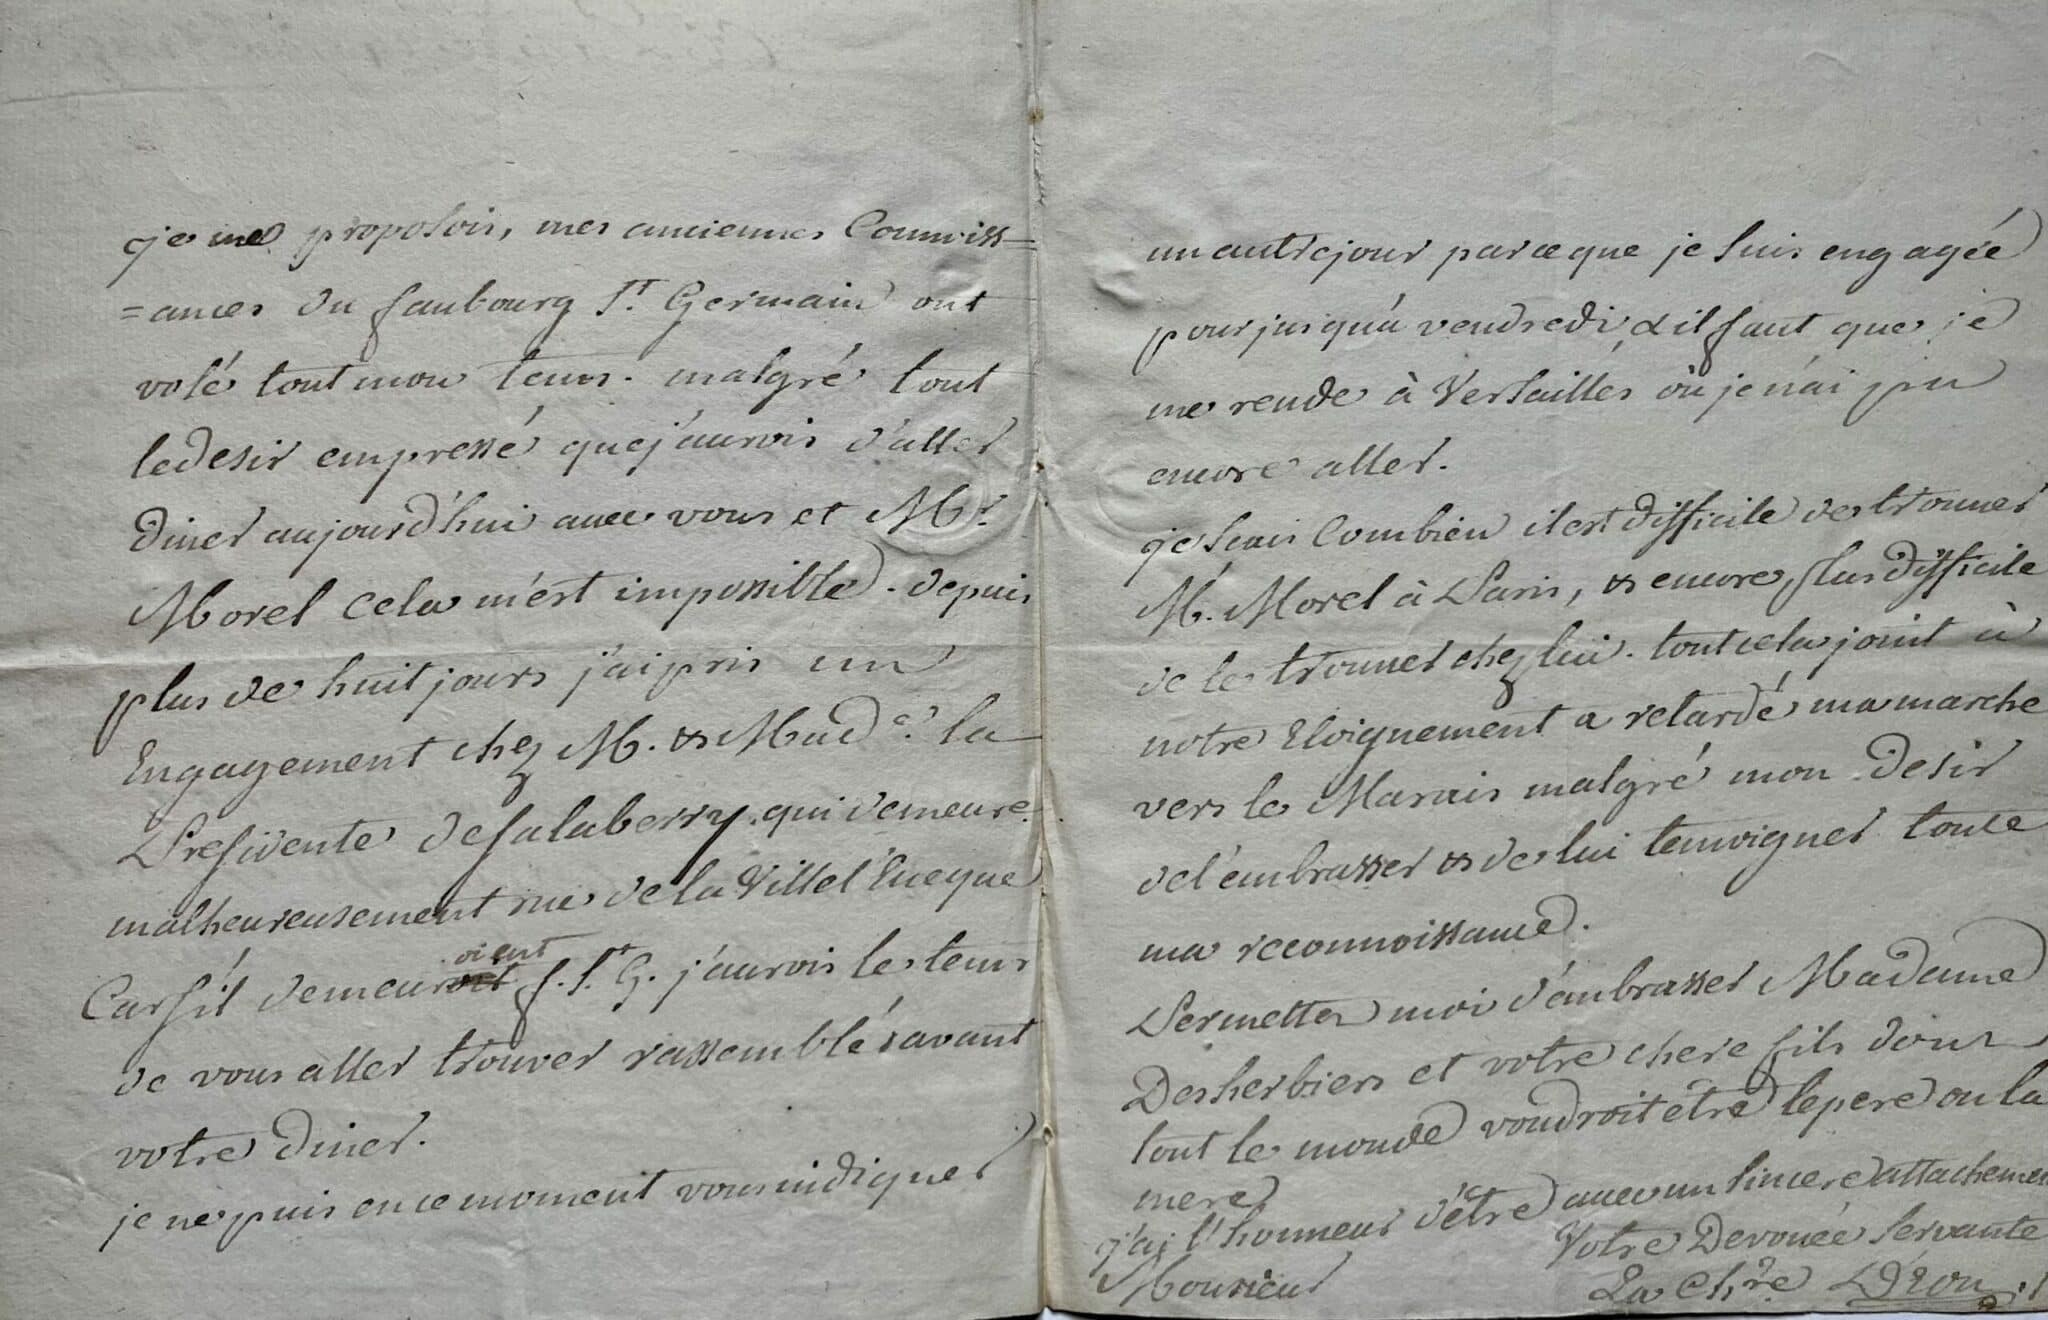 je me proposois, mes anciennes Connoiss=
=ances du faubourg St. Germain ont
volé tout mon tems. malgré tout
le desir empressé que j'aurois d'aller
diner aujourd'hui avec vous et Mr.
Morel cela m'est impossible. depuis
plus de huit jours j'ai pris un
Engagement chez M. & Made. la
Presidente de Salaberry qui demeure
malheureusement rue de la Ville l'Eveque
Car s'il demeuroient f. St. G. j'aurois le tems
de vous aller trouver rassemblés avant
votre diner.
je ne puis en ce moment vous indiquer
un autre jour parce que je suis engagée
pour jusqu'a vendredi & il faut que je
me rende à Versailles où je n'ai pu
encore aller.
je scais Combien il est difficile de trouver
M. Morel à Paris, & encore plus difficile
de le trouver chez lui. tout cela joint à
notre Eloignement a retardé ma marche
vers le Marais malgré mon desir
de l'embrasser & de lui temoigner toute
ma reconnoissance.
Permettez moi d'embrasser Madame
Desherbiers et votre chere fils dont
tout le monde voudroit être le pere ou la
mere
j'ai l'honneur d'être avec un sincere attachement
Monsieur
Votre Devouée servante
La Chre. D'Eon